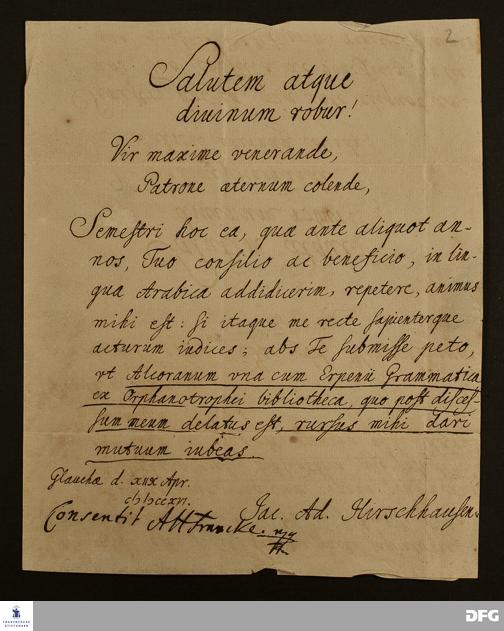 2
Salutem atque
diuinum robur!
Vir maxime venerande,
Patrone æternum colende,
Semestri hoc ea, quæ ante aliquot an-
nos, Tuo consilio ac beneficio, in lin-
gua Arabica addidicerim, repetere, animus
mihi est: si itaque me recte sapienterque
acturum iudices; abs Te submisse peto,
vt Alcoranum vna cum Erpenii Grammatica
ex Orphanotrophei bibliotheca, quo post disces-
sum meum delatus est, rursus mihi dari
mutuum iubeas.
Glauchæ d. XIIX Apr.
Jac. Ad. Hirschhausen.
Consentit AHFrancke.
FRANCKESCHE
STIFTUNGEN
DFG